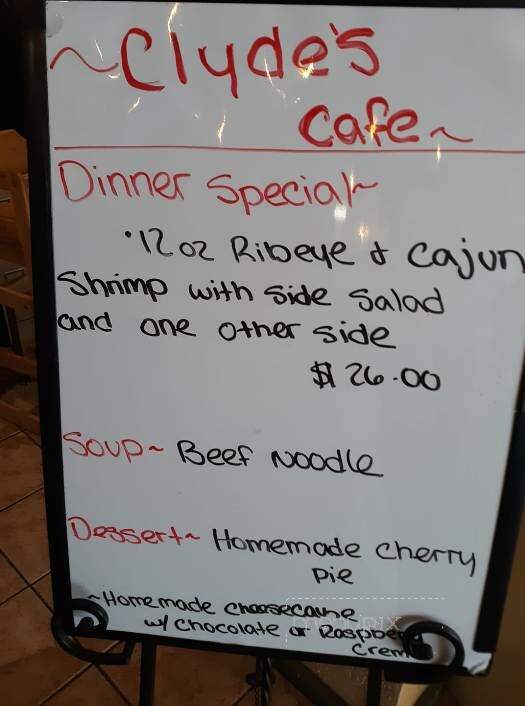 ~Clyde's
Cafe~
Dinner Special~
·12oz Ribeye & Cajun
Shrimp with side salad
and one other side
$ 26.00
Soup~ Beef Noodle
Dessert~ Homemade Cherry
Pie
~Homemade
w/ Chocolate or